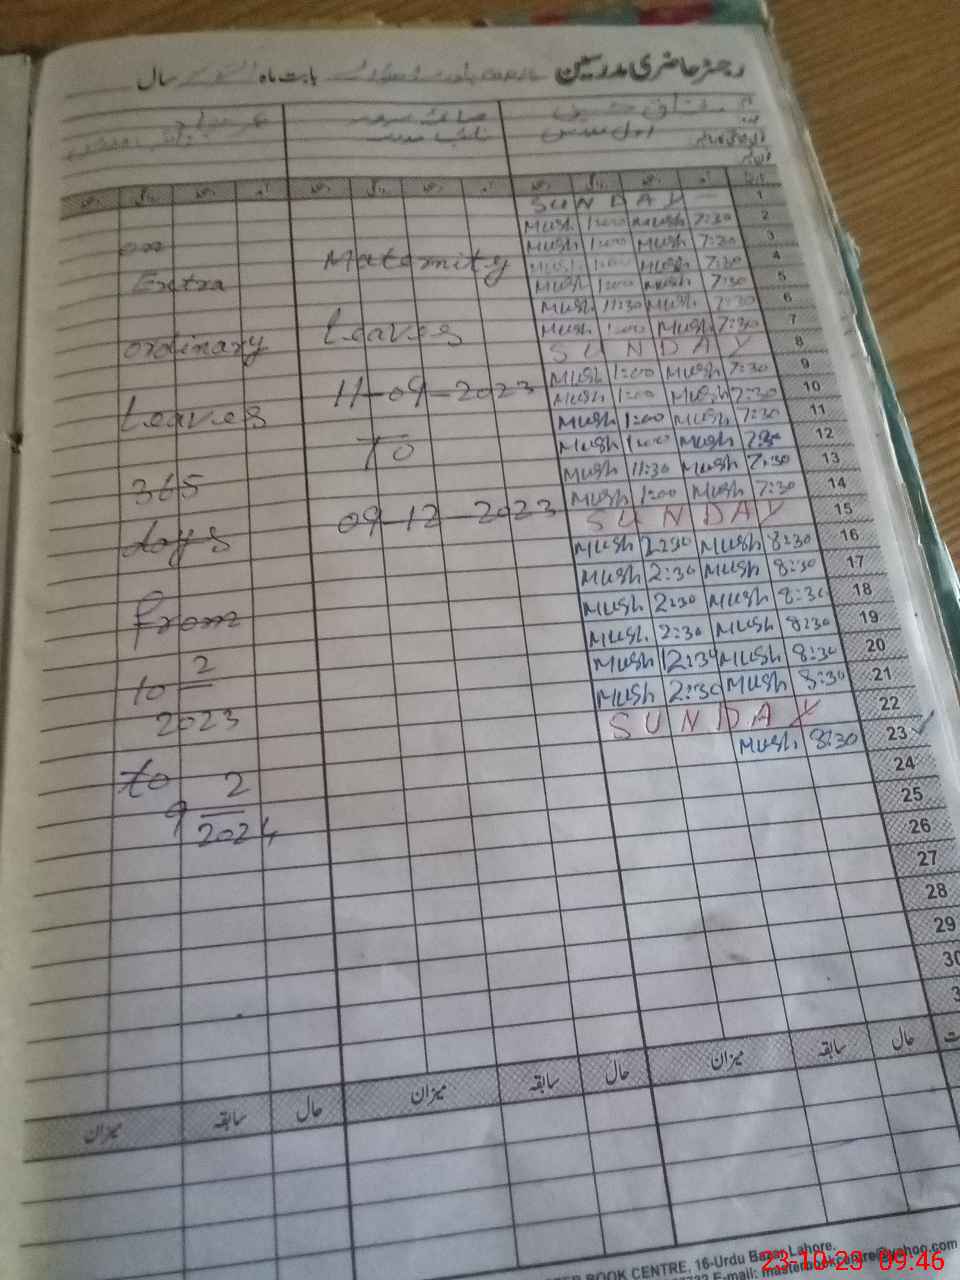 رجسٹر حاضری مدرسین
بابت ماہ
سال
اول مدرس
نائب مدرس
1 S U N D A Y
2 Mush 1:00 Mush 7:30
3 Mush 1:00 Mush 7:30
4 Mush 1:00 Mush 7:30
5 Mush 1:00 Mush 7:30
6 Mush 11:30 Mush 7:30
7 Mush 1:00 Mush 7:30
8 S U N D A Y
9 Mush 1:00 Mush 7:30
10 Mush 1:00 Mush 7:30
11 Mush 1:00 Mush 7:30
12 Mush 1:00 Mush 7:30
13 Mush 11:30 Mush 7:30
14 Mush 1:00 Mush 7:30
15 S U N D A Y
16 Mush 2:30 Mush 8:30
17 Mush 2:30 Mush 8:30
18 Mush 2:30 Mush 8:30
19 Mush 2:30 Mush 8:30
20 Mush 12:30 Mush 8:30
21 Mush 2:30 Mush 8:30
22 S U N D A Y
23 Mush 8:30
24
25
26
27
28
29
30
Maternity
Leaves
11-09-2023
To
09-12-2023
on
Extra
ordinary
Leaves
365
days
from
10 2
2023
to
9 2
2024
حال سابقہ میزان حال سابقہ میزان حال سابقہ میزان
BOOK CENTRE, 16-Urdu Bazar Lahore.
E-mail: masterbookcentre@yahoo.com
23-10-23 09:46